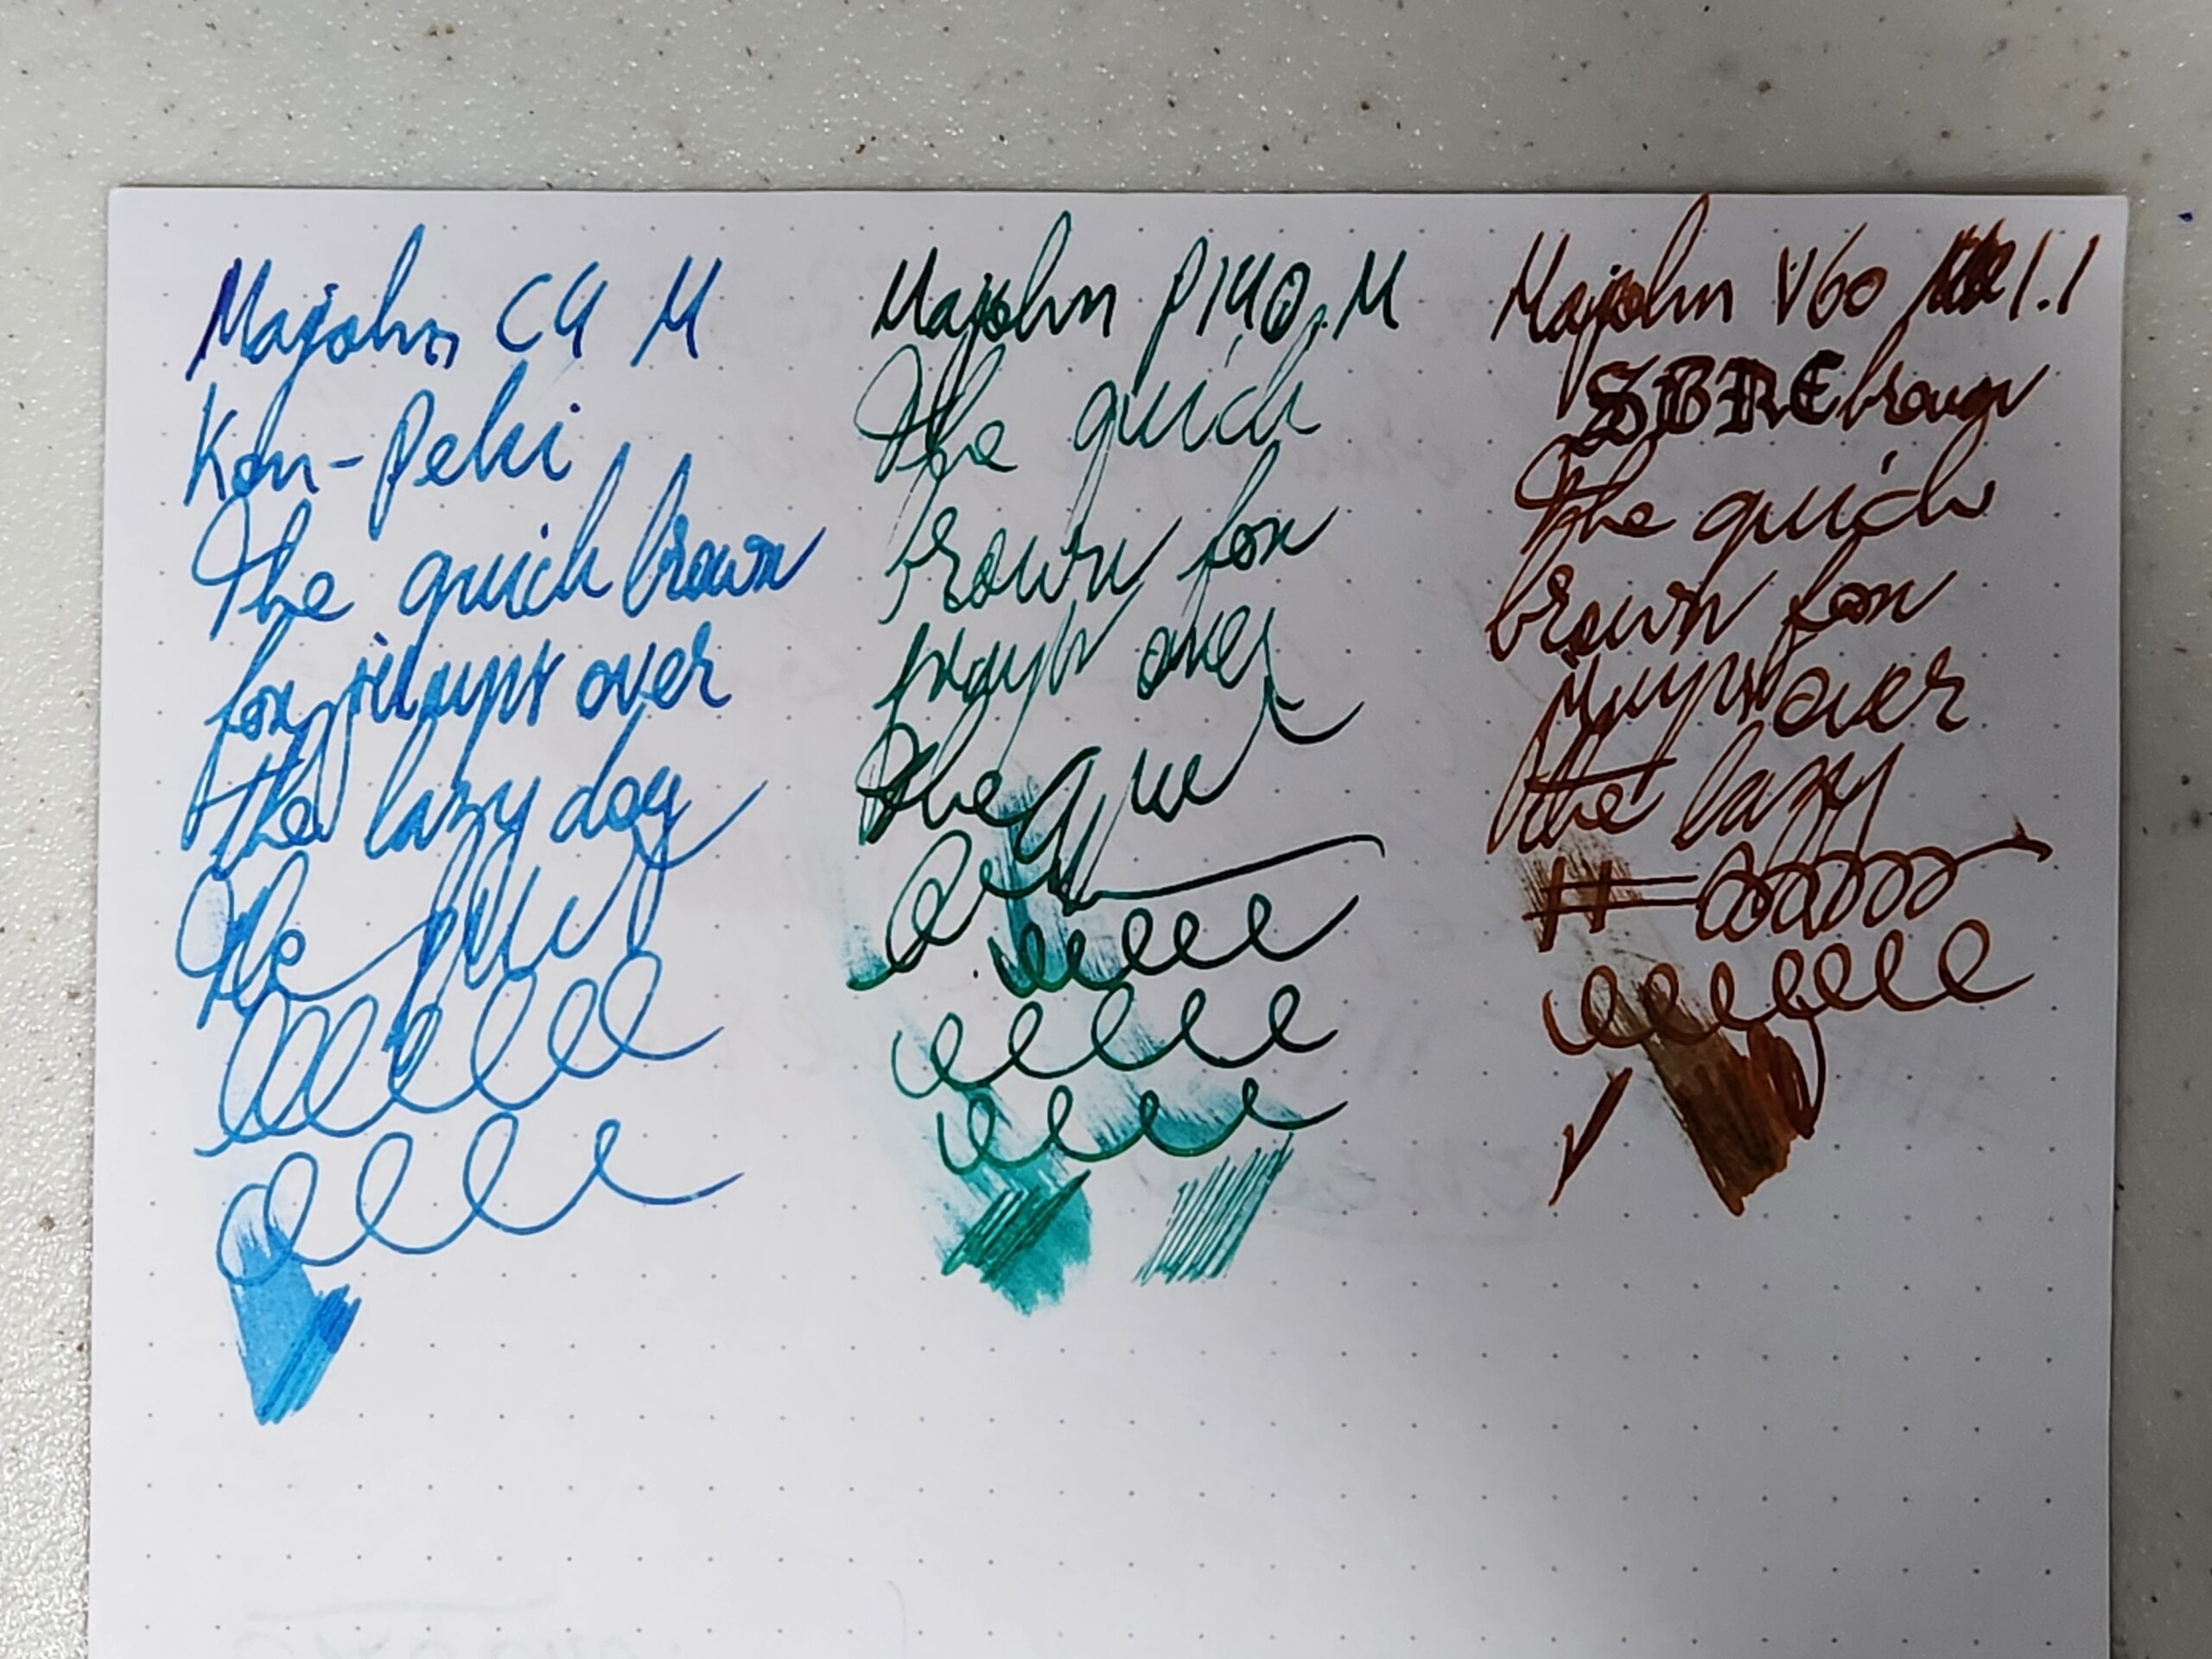 Majohn C4 M
Kon-Peki
The quick brown
fox jumps over
the lazy dog
The qui
Majohn P140 M
The quick
brown fox
jumps over
The qui
Majohn V60 1.1
SBRE brown
The quick
brown fox
jumps over
the lazy